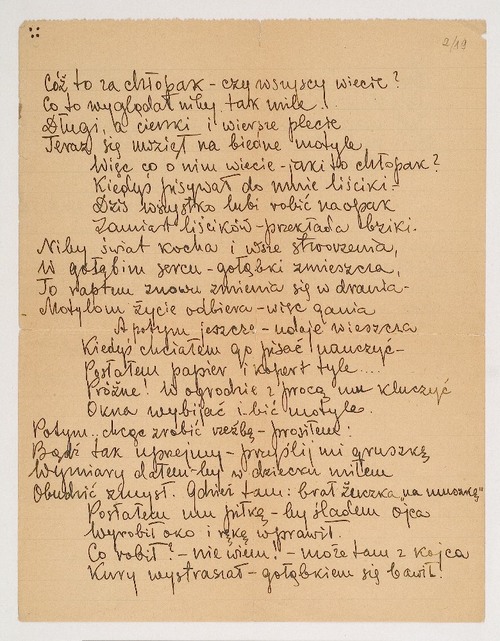 2/19
Cóż to za chłopak - czy wszyscy wiecie?
Co to wyglądał niby tak mile..
Długi, a cienki i wiersze plecie
Teraz się wziął na biedne motyle
Więc co o nim wiecie - jaki to chłopak?
Kiedyś pisywał do mnie liściki -
Dziś wszystko lubi robić naopak
Zamiast liścików - przekłada bziki.
Niby świat kocha i wsze stworzenia,
W gołębim sercu - gołąbki zmieszcza,
To raptem znowu zmienia się w drania -
Motylom życie odbiera - więc gania
A potym jeszcze - udaje wieszcza
Kiedyś chciałem go pisać nauczyć -
Posłałem papier i kopert tyle....
Próżne! W ogrodzie z procą mu kluczyć
Okna wybijać i bić motyle.
Potym.. chcąc zrobić rzeźbę - prosiłem:
Bądź tak uprzejmy - przyślij mi gruszkę
Wymiary dałem - by w dziecku miłem
Obudzić zmysł. Gdzież tam: brał żuczka „na muszkę"
Posłałem mu piłkę - by śladem ojca
Wyrobił oko i rękę wprawił.
Co robił? - nie wiem. - może tam z kojca
Kury wystraszał - gołąbkiem się bawił.